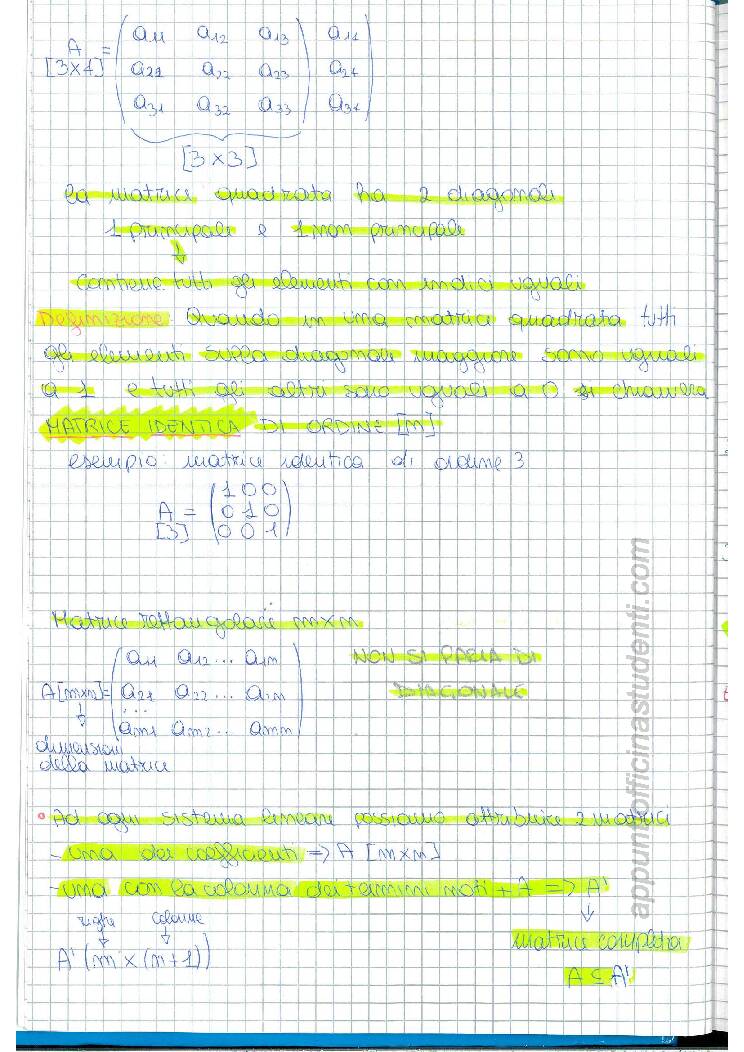 A [3×4] = ( a11 a12 a13 ) a14
a21 a22 a23 a24
a31 a32 a33 a34
[3×3]
La matrice quadrata ha 2 diagonali
1 principale e 1 non principale
↓
contiene tutti gli elementi con indici uguali
Definizione: Quando in una matrice quadrata tutti
gli elementi sulla diagonale maggiore sono uguali
a 1 e tutti gli altri sono uguali a 0 si chiamera
MATRICE IDENTICA DI ORDINE [n]
esempio: matrice identica di ordine 3
A [3] = ( 1 0 0
0 1 0
0 0 1 )
Matrice rettangolare m×n
A[m×n] = ( a11 a12 ... a1n
a21 a22 ... a2n
...
am1 am2 .. amn )
NON SI PARLA DI
DIAGONALE
↓
dimensioni
della matrice
• Ad ogni sistema lineare possiamo attribuire 2 matrici
- una dei coefficienti => A [m×n]
- una con la colonna dei termini noti + A => A'
righe colonne
↓ ↓ ↓
A' (m × (n+1))
matrice completa
A ⊆ A'
appuntiofficinastudenti.com